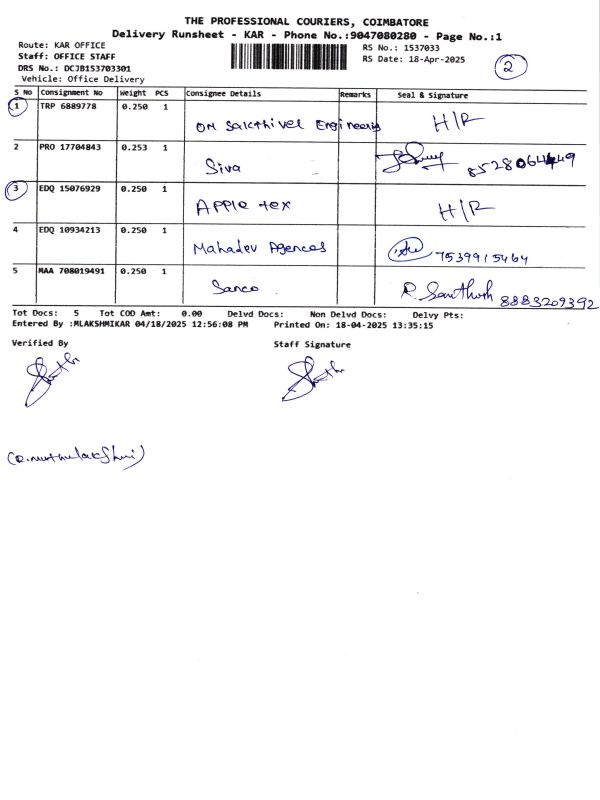 THE PROFESSIONAL COURIERS, COIMBATORE
Delivery Runsheet - KAR - Phone No.:9047080280 - Page No.:1
Route: KAR OFFICE
Staff: OFFICE STAFF
DRS No.: DCJB153703301
Vehicle: Office Delivery
RS No.: 1537033
RS Date: 18-Apr-2025
2
S NO Consignment No Weight PCS Consignee Details Remarks Seal & Signature
1 TRP 6889778 0.250 1 OM Sakthivel Engineers H/R
2 PRO 17704843 0.253 1 Siva 8528064449
3 EDQ 15076929 0.250 1 Apple tex H/R
4 EDQ 10934213 0.250 1 Mahadev Agences 7539915464
5 MAA 708019491 0.250 1 Sanco R. Santhosh 8883209392
Tot Docs: 5 Tot COD Amt: 0.00 Delvd Docs: Non Delvd Docs: Delvy Pts:
Entered By :MLAKSHMIKAR 04/18/2025 12:56:08 PM Printed On: 18-04-2025 13:35:15
Verified By Staff Signature